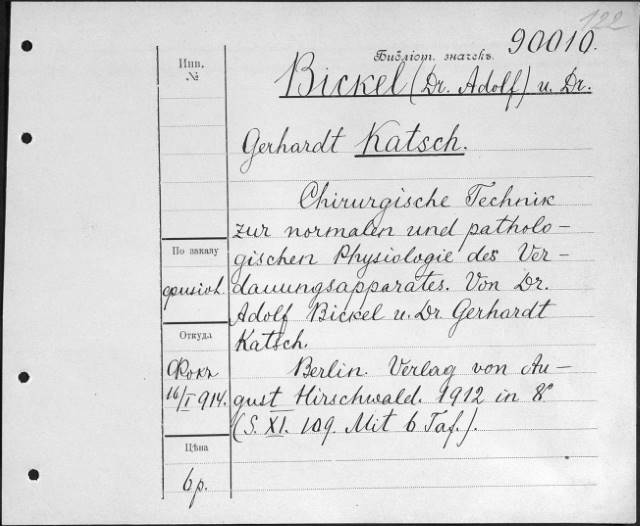 122
90010.
Библіот. значекъ.
Инв.
№
Bickel (Dr. Adolf) u. Dr.
Gerhardt Katsch.
Chirurgische Technik
zur normalen und patholo-
gischen Physiologie des Ver-
dauungsapparates. Von Dr.
Adolf Bickel u. Dr. Gerhardt
Katsch.
Berlin. Verlag von Au-
gust Hirschwald. 1912 in 8°
(S. XI. 109. Mit 6 Taf.).
По заказу
физіол.
Откуда
Фокъ
16/I 914.
Цѣна
6 р.